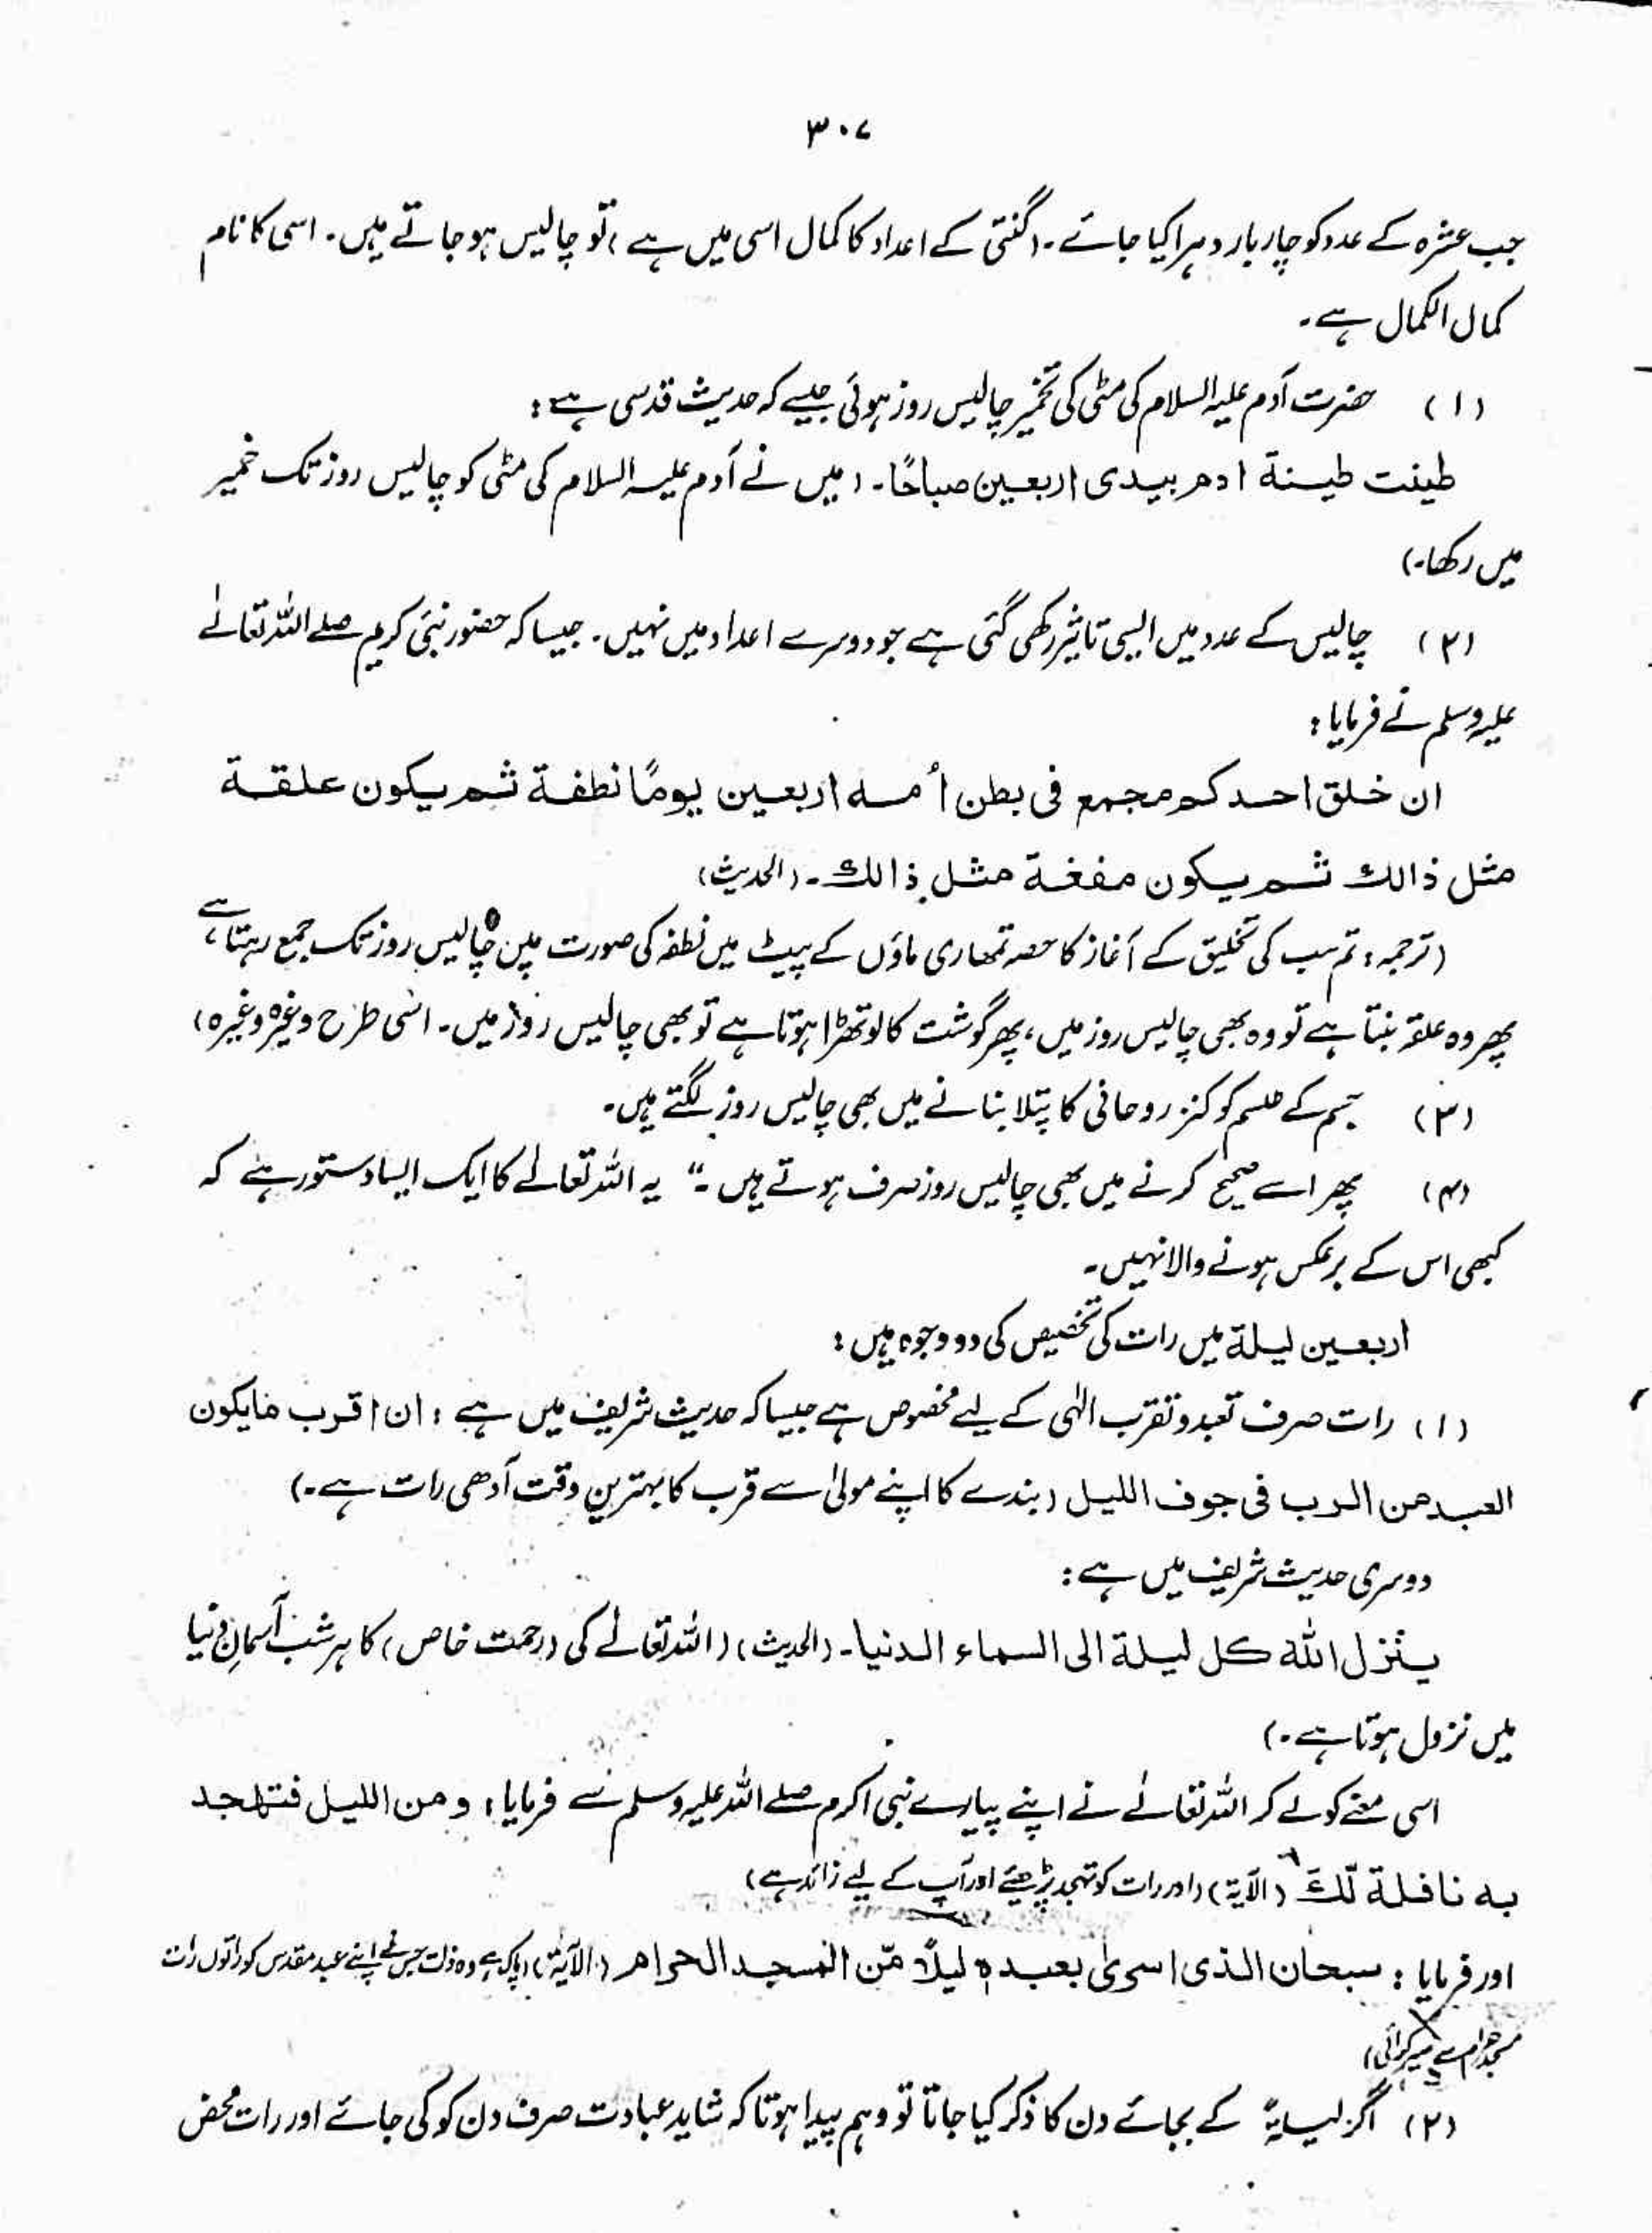 ۳۰۷
جب عشرہ کے عدد کو چار بار دہرا کیا جائے۔ (گنتی کے اعداد کا کمال اسی میں ہے) تو چالیس ہو جاتے ہیں۔ اسی کا نام
کمال الکمال ہے۔
(۱) حضرت آدم علیہ السلام کی مٹی کی تخمیر چالیس روز ہوئی جیسے کہ حدیث قدسی ہے :
طینت طینة ادم بیدی اربعین صباحًا۔ (میں نے آدم علیہ السلام کی مٹی کو چالیس روز تک خمیر
میں رکھا۔)
(۲) چالیس کے عدد میں ایسی تاثیر رکھی گئی ہے جو دوسرے اعداد میں نہیں۔ جیسا کہ حضور نبئ کریم صلے اللہ تعالےٰ
علیہ وسلم نے فرمایا :
ان خلق احدکم مجمع فی بطن اُمه اربعین یومًا نطفة ثم یکون علقة
مثل ذالك ثم یکون مفغة مثل ذالك۔ (الحدیث)
(ترجمہ : تم سب کی تخلیق کے آغاز کا حصہ تمھاری ماؤں کے پیٹ میں نطفہ کی صورت میں چالیس روز تک جمع رہتا ہے،
پھر وہ علقہ بنتا ہے تو وہ بھی چالیس روز میں، پھر گوشت کا لوتھڑا ہوتا ہے تو بھی چالیس روز میں۔ اسی طرح وغیرہ وغیرہ)
(۳) جسم کے طلسم کو کنز روحانی کا پتلا بنانے میں بھی چالیس روز لگتے ہیں۔
(۴) پھر اسے صحیح کرنے میں بھی چالیس روز صرف ہوتے ہیں۔" یہ اللہ تعالےٰ کا ایک ایسا دستور ہے کہ
کبھی اس کے برعکس ہونے والا نہیں۔
اربعین لیلة میں رات کی تخصیص کی دو وجوہ ہیں :
(۱) رات صرف تعبد و تقرب الٰہی کے لیے مخصوص ہے جیسا کہ حدیث شریف میں ہے : ان اقرب مایکون
العبد من الرب فی جوف اللیل (بندے کا اپنے مولیٰ سے قرب کا بہترین وقت آدھی رات ہے۔)
دوسری حدیث شریف میں ہے :
ینزل اللہ کل لیلة الی السماء الدنیا۔ (الحدیث) (اللہ تعالےٰ کی (رحمت خاص) کا ہر شب آسمانِ دنیا
میں نزول ہوتا ہے۔)
اسی معنے کو لے کر اللہ تعالےٰ نے اپنے پیارے نبی اکرم صلے اللہ علیہ وسلم سے فرمایا : ومن اللیل فتهجد
به نافلة لّكَ (الآیة) (اور رات کو تہجد پڑھیے اور آپ کے لیے زائد ہے)
اور فرمایا : سبحان الذی اسریٰ بعبدہ لیلاً مّن المسجد الحرام (الآیة) (پاک ہے وہ ذات جس نے اپنے عبد مقدس کو راتوں رات
مسجد حرام سے سیر کرائی)
(۲) اگر لیلۃً کے بجائے دن کا ذکر کیا جاتا تو وہم پیدا ہوتا کہ شاید عبادت صرف دن کو کی جائے اور رات محض